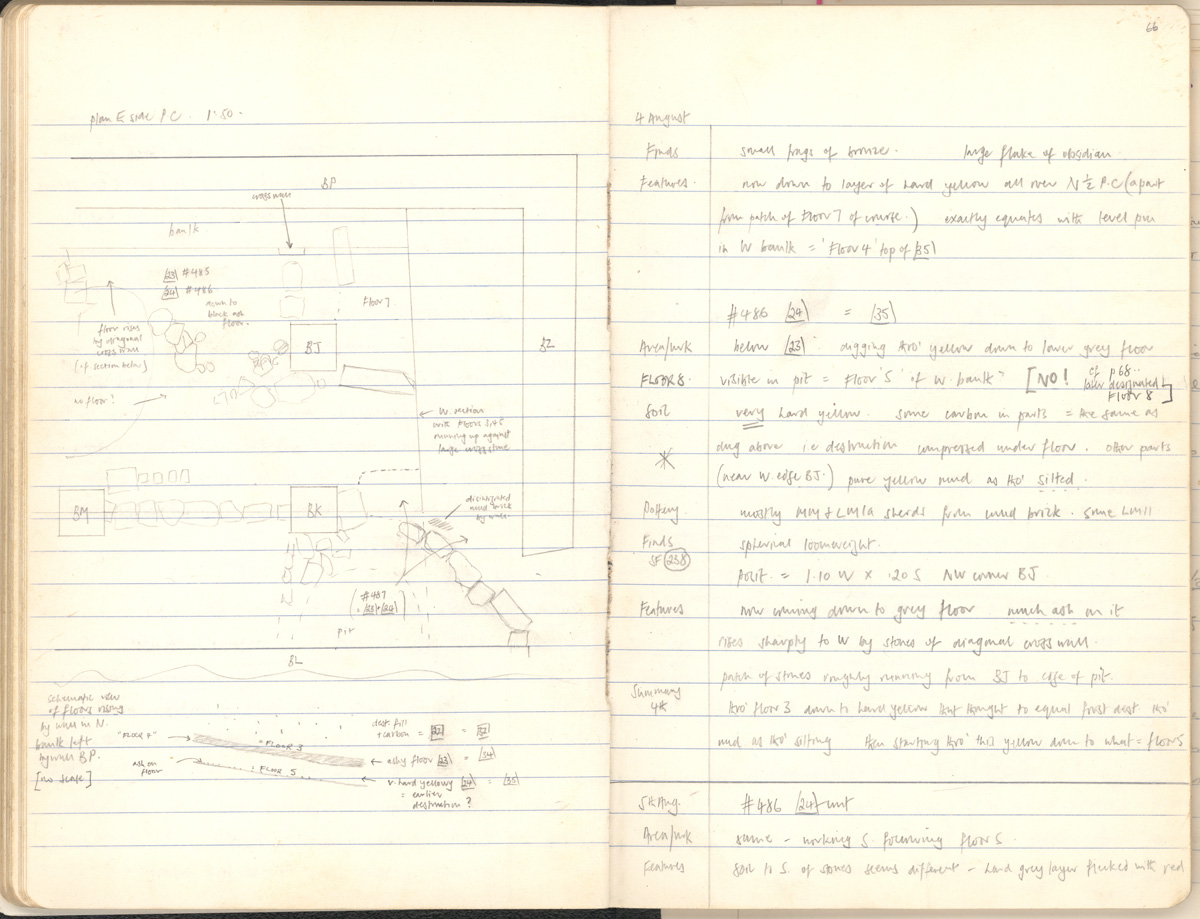 plan E side P.C. 1:50.
BP
crosswall
baulk
/23\ #485
/24\ #486
down to
black ash
floor.
Floor 7
floor rises
by diagonal
cross wall
(cf section below)
BJ
BZ
no floor?
← W. section
with floors 3, 4, 5
running up against
large cross stone
BM
BK
disintegrated
mud brick
by wall.
(#487
/23\ + /24\)
pit
BL
Schematic view
of floors rising
by wall in N.
baulk left
by wall BP.
[no scale]
"FLOOR 4" →
FLOOR 3
ash on
floor
FLOOR 5
dest. fill
+ carbon = /22\ = /32\
← ashy floor /23\ = /34\
← v. hard yellowy /24\ = /35\
= earlier
destruction?
66
4 August
Finds small frags of bronze. large flake of obsidian.
Features. now down to layer of hard yellow all over N ½ P.C (apart
from patch of Floor 7 of course.) exactly equates with level prev
in W baulk = 'Floor 4' top of /35\
#486 /24\ = /35\
Area/wrk below /23\ digging thro' yellow down to lower grey floor
FLOOR 8. visible in pit = Floor '5' of W. baulk? [NO! cf p 68..
later designated
Floor 8]
Soil very hard yellow. some carbon in parts = the same as
dug above i.e destruction compressed under floor. other parts
(near W. edge BJ.) pure yellow mud as tho' silted.
Pottery mostly MM & LM1a sherds from mud brick. some LM11
Finds spherical loomweight.
SF (238)
posit. = 1.10 W × .20 S NW corner BJ
Features now coming down to grey floor much ash on it
rises sharply to W by stones of diagonal cross wall.
patch of stones roughly running from BJ to edge of pit.
Summary
4th thro' floor 3 down to hard yellow that thought to equal first dest. tho'
mud as tho' silting then starting thro' this yellow down to what = floor 5
5th Aug. #486 /24\ cont
Area/wrk same - working S. following floor 5.
Features soil to S. of stones seems different - hard grey layer flecked with red